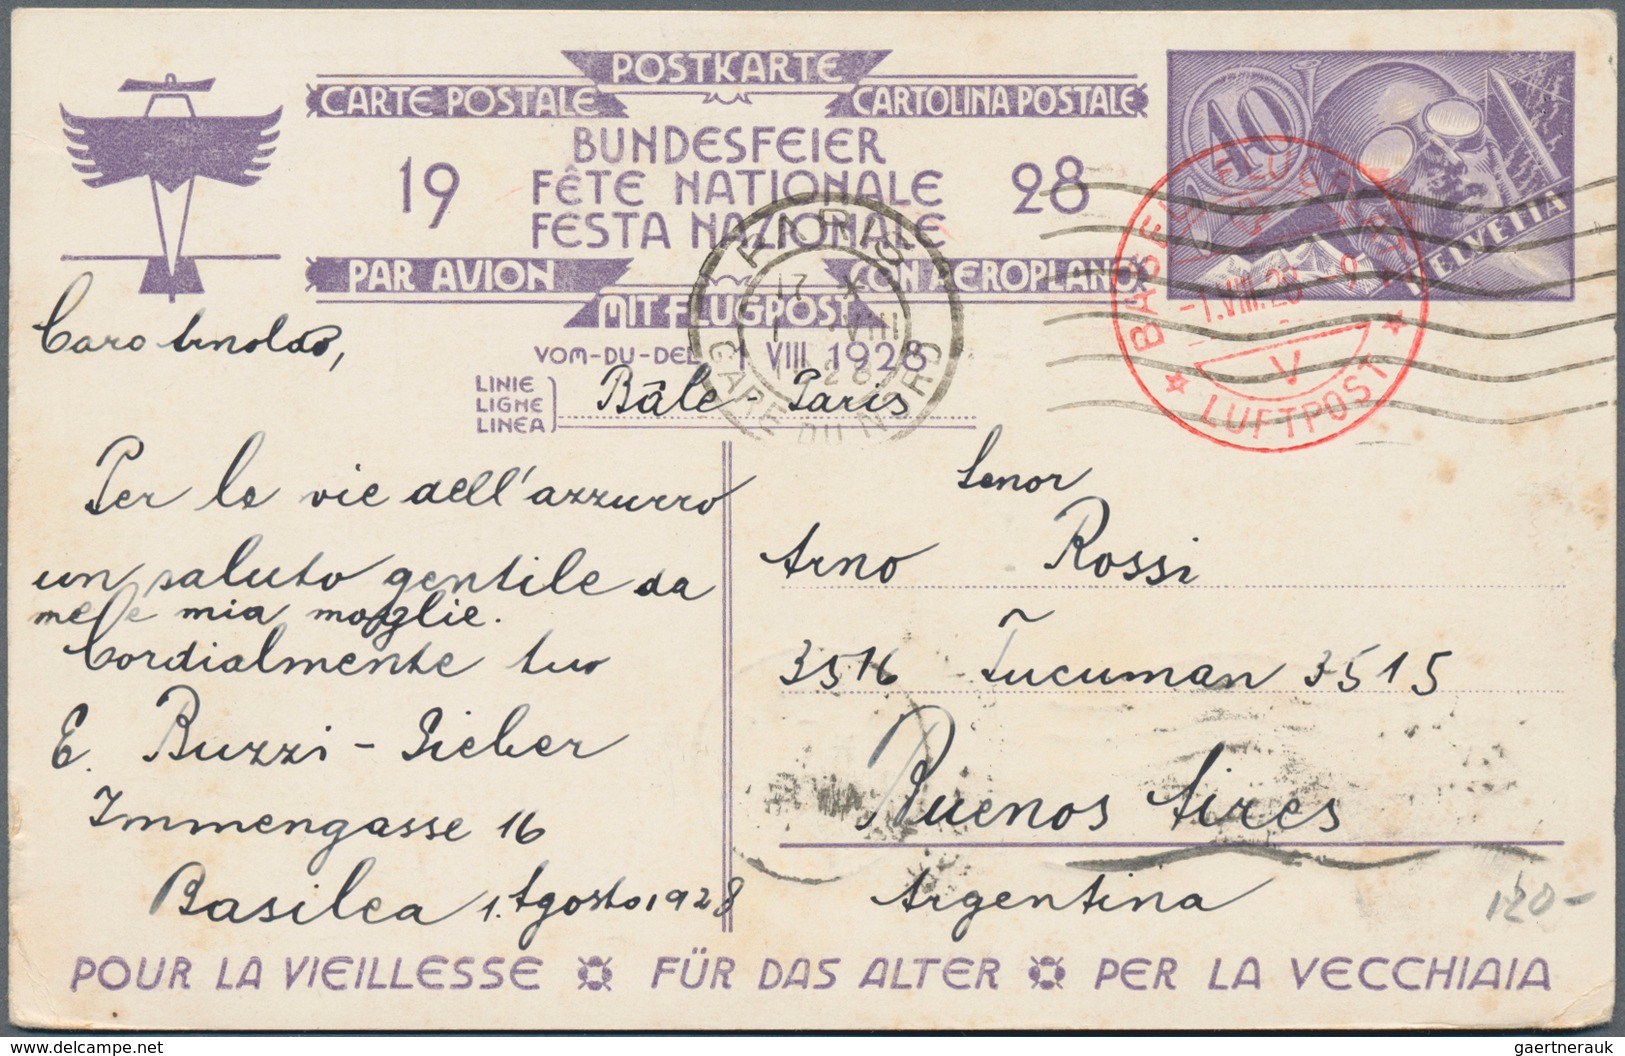 POSTKARTE
CARTE POSTALE CARTOLINA POSTALE
BUNDESFEIER
19 FÊTE NATIONALE 28
FESTA NAZIONALE
PAR AVION CON AEROPLANO
MIT FLUGPOST
VOM-DU-DEL 1 VIII 1928
LINIE
LIGNE
LINEA
Bâle - Paris
40
HELVETIA
BASEL FLUGPLATZ
-1.VIII.28 - 9
V
LUFTPOST
PARIS
17 21
VIII
28
GARE DU NORD
Caro Arnoldo,
Per le vie dell'azzurro
un saluto gentile da
me e mia moglie.
Cordialmente tuo
E. Buzzi - Sieber
Immengasse 16
Basilea 1. Agosto 1928
Senor
Arno Rossi
3516 Tucuman 3515
Buenos Aires
Argentina
120-
POUR LA VIEILLESSE FÜR DAS ALTER PER LA VECCHIAIA
www.delcampe.net
gaertnerauk